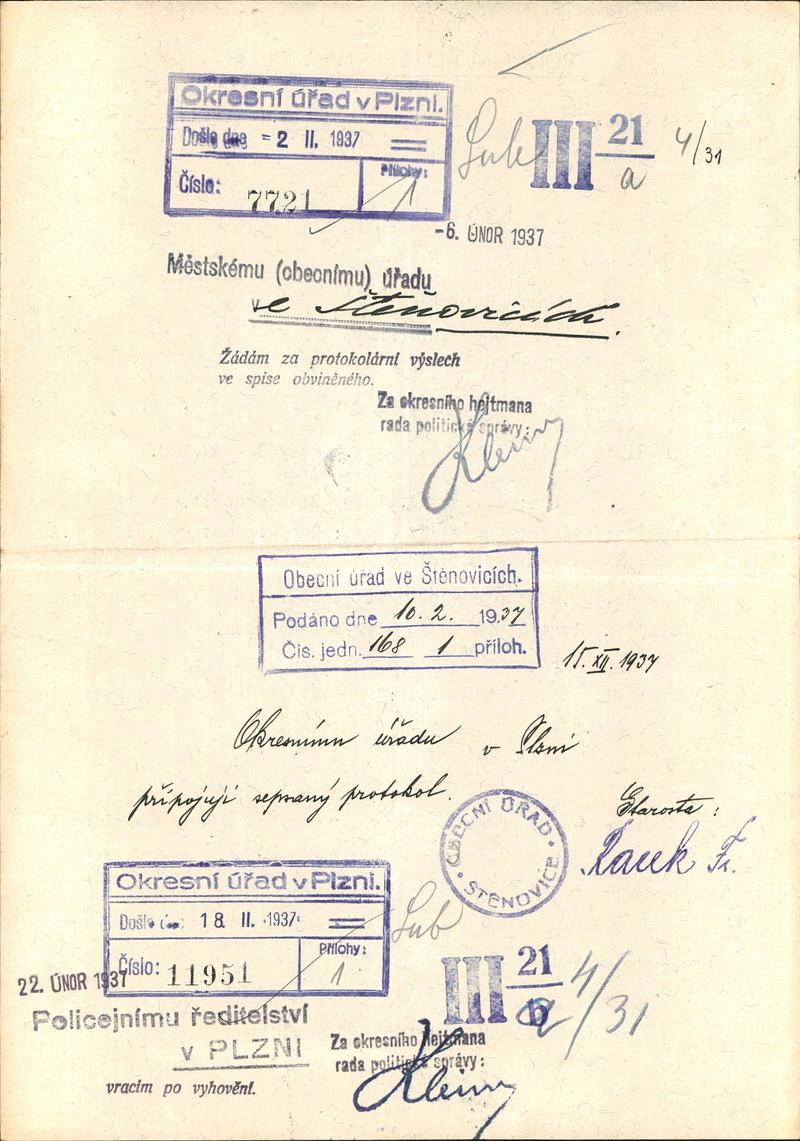 Okresní úřad v Plzni.
Došlo dne = 2 II. 1937
Přílohy:
Číslo: 7721 1
III 21 4/31
a
-6. ÚNOR 1937
Městskému (obecnímu) úřadu
ve Štěnovicích.
Žádám za protokolární výslech
ve spise obviněného.
Za okresního hejtmana
rada politické správy:
Obecní úřad ve Štěnovicích.
Podáno dne 10. 2. 1937
Čís. jedn. 168 1 příloh.
15. XII. 1937
Okresnímu úřadu v Plzni
připojuji sepsaný protokol.
Starosta:
OBECNÍ ÚŘAD
ŠTĚNOVICE
Fr.
Okresní úřad v Plzni.
Došlo dne 18. II. 1937
Přílohy:
Číslo: 11951 1
III 21 4/31
b
22. ÚNOR 1937
Policejnímu ředitelství
v PLZNI
Za okresního hejtmana
rada politické správy:
vracím po vyhovění.